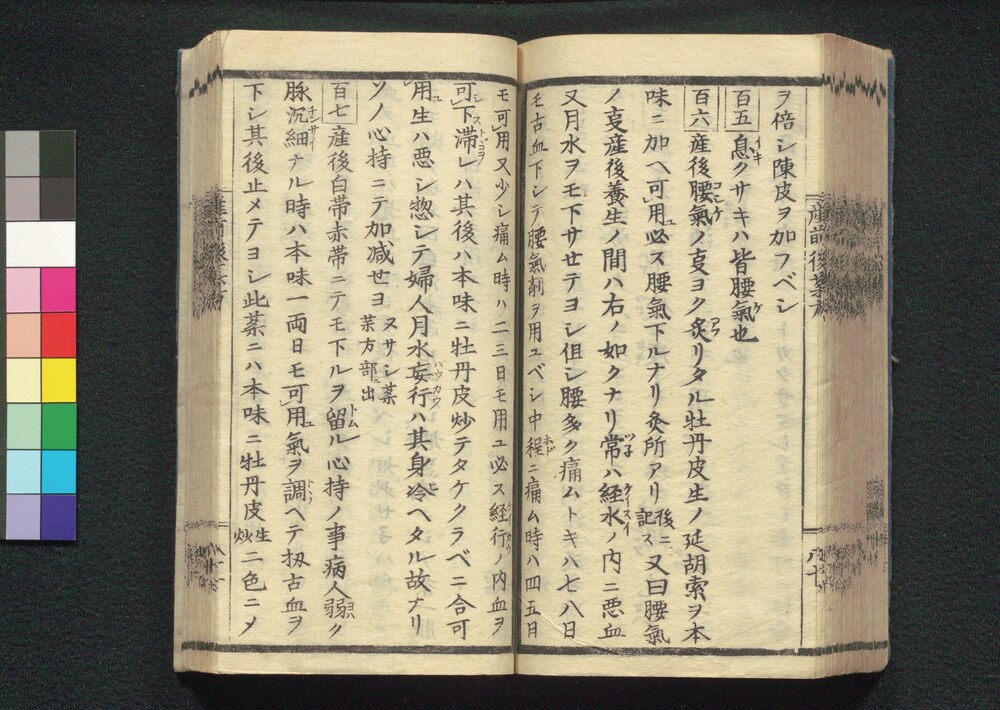 ヲ倍シ陳皮ヲ加フベシ
百五 息クサキハ皆腰氣也
百六 産後腰氣ノ叓ヨク炙リタル牡丹皮生ノ延胡索ヲ本
味ニ加ヘ可用必ス腰氣下ルナリ灸所アリ後ニ記ス又曰腰氣
ノ叓産後養生ノ間ハ右ノ如クナリ常ハ経水ノ内ニ悪血
又月水ヲモ下サセテヨシ但シ腰多ク痛ムトキハ七八日
モ古血下シテ腰氣剤ヲ用ユベシ中程ニ痛ム時ハ四五日
モ可用又少シ痛ム時ハ二三日モ用ユ必ス経行ノ内血ヲ
可下滞レハ其後ハ本味ニ牡丹皮炒テタケクラベニ合可
用生ハ悪シ惣シテ婦人月水妄行ハ其身冷ヘタル故ナリ
ソノ心持ニテ加减セヨ ヌサシ薬
薬方部出
百七 産後白帯赤帯ニテモ下ルヲ留ル心持ノ事病人弱ク
脉沉細ナル時ハ本味一両日モ可用氣ヲ調ヘテ扨古血ヲ
下シ其後止メテヨシ此薬ニハ本味ニ牡丹皮生炒二色ニメ